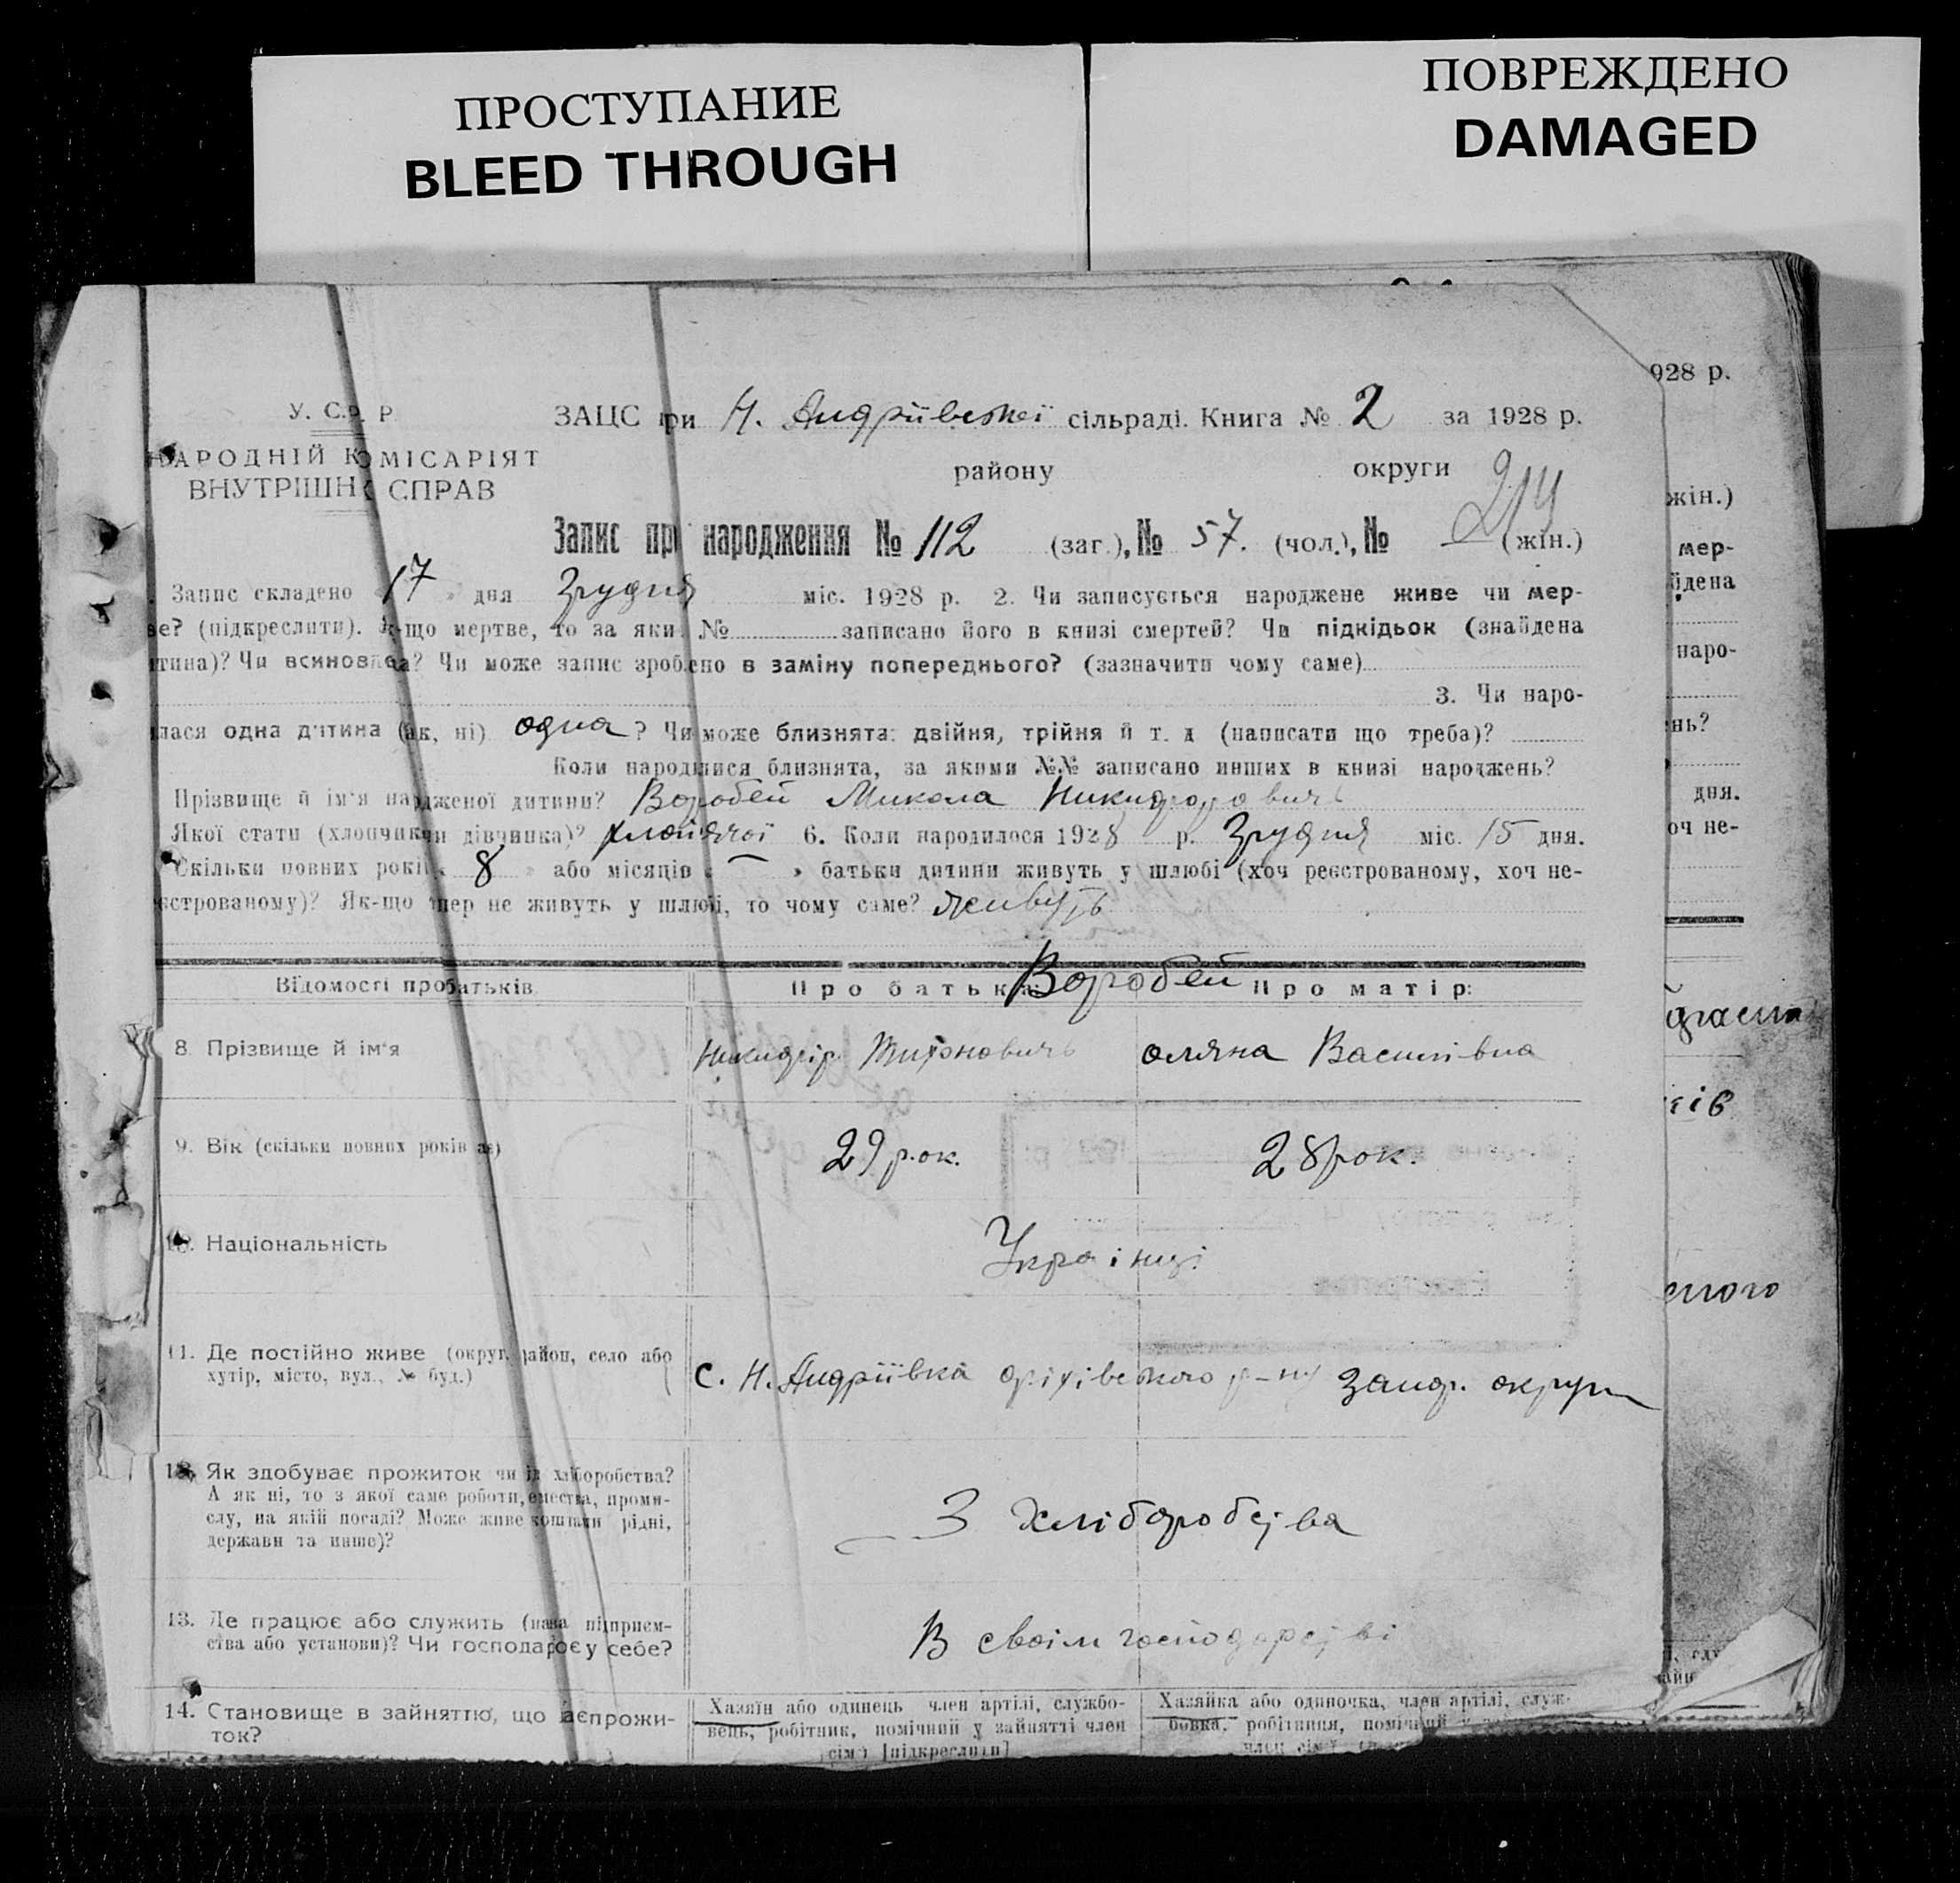 ПРОСТУПАНИЕ
BLEED THROUGH
ПОВРЕЖДЕНО
DAMAGED
928 р.
У. С.Р. Р
НАРОДНІЙ КОМІСАРІЯТ
ВНУТРІШН СПРАВ
ЗАЦС при Н. Андріївській сільраді. Книга № 2 за 1928 р.
району округи
214
Запис пр народження № 112 (заг.), № 57. (чол.), № (жін.)
Запис складено 17 дня Грудня міс. 1928 р. 2. Чи записується народжене живе чи мер-
ве? (підкреслити). Як-що мертве, то за яки № записано його в книзі смертей? Чи підкідьок (знайдена
тина)? Чи всиновлеа? Чи може запис зроблено в заміну попереднього? (зазначити чому саме)
3. Чи наро-
лася одна дитина (як, ні) одна? Чи може близнята: двійня, трійня й т. д (написати що треба)?
Коли народилися близнята, за якими №№ записано инших в книзі народжень?
Прізвище й ім'я нардженої дитини? Воробей Микола Никифорович
Якої стати (хлопчик чи дівчинка)? 6. Коли народилося 1928 р. Грудня міс. 15 дня.
Скільки повних рокі 8 або місяців — батьки дитини живуть у шлюбі (хоч реєстрованому, хоч не-
єстрованому)? Як-що тпер не живуть у шлюбі, то чому саме? живуть
Воробей
Відомості про батьків Про батька: Про матір:
8. Прізвище й ім'я Никифір Тихонович Оляна Василівна
9. Вік (скільки повних років має) 29 рок. 28 рок.
10. Національність Українці
11. Де постійно живе (округ, район, село або
хутір, місто, вул., № буд.)
С. Н. Андріївка Оріхівського р-ну Запор. округи
12. Як здобуває прожиток чи із хліборобства?
А як ні, то з якої саме роботи, ремества, проми-
слу, на якій посаді? Може живе коштами рідні,
держави та инше)?
З Хліборобства
13. Де працює або служить (назва підприєм-
ства або установи)? Чи господарює у себе?
В своім господарстві
14. Становище в зайняттю, що дає прожи-
ток?
Хазяїн або одинець член артілі, службо-
вець, робітник, помічний у зайнятті член
сім'ї [підкреслити]
Хазяйка або одиночка, член артілі, служ-
бовка, робітниця, помічний у
член сім'ї
жін.)
мер-
йдена
наро-
нь?
дня.
оч не-